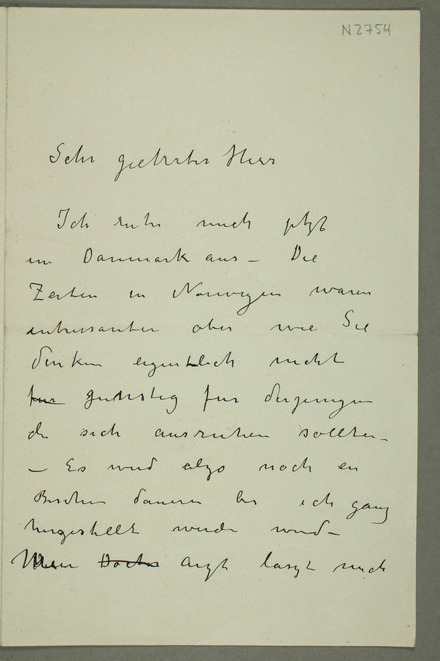 N 2754
Sehr geehrter Herr
Ich ruhe mich jetzt
im Danmark aus – Die
Zeiten in Norwegen waren
interssanter aber wie Sie
denken eigentlich nicht
fur gunstig fur diejenigen
die sich ausruhen sollten –
– Es wird also noch ein
Bischen dauern bis ich ganz
hergestellt werde wird –
Mein Docter arzt laszt mich